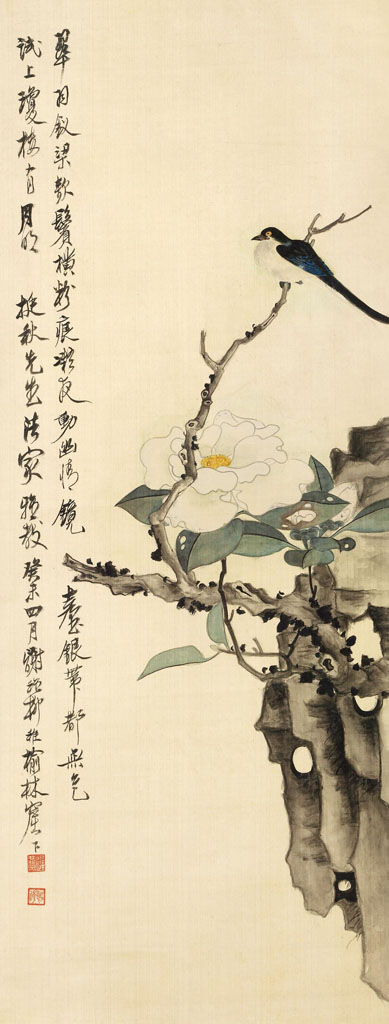 翠羽釵梁欹鬢橫粉痕凝夜動幽情鏡臺銀都無色
試上瓊樓看月明 挺秋先生法家雅教癸未四月謝稚柳於榆林窟下